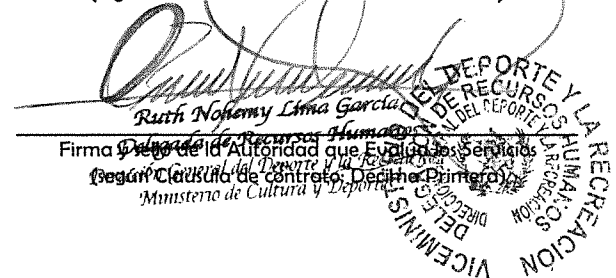 Ruth Nohemy Lima García
Delegada de Recursos Humanos
Firma y sello de la Autoridad que Evalúa los Servicios
Dirección General del Deporte y la Recreación
(según Cláusula de contrato: Décima Primera)
Ministerio de Cultura y Deportes
VICEMINISTERIO DEL DEPORTE Y LA RECREACIÓN
DELEGACIÓN DE RECURSOS HUMANOS
DIRECCIÓN GENERAL DEL DEPORTE Y LA RECREACIÓN